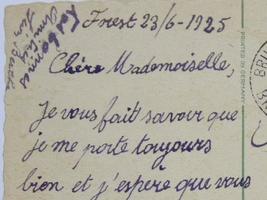 Forest 23/6-1925
Chère Mademoiselle,
Je vous fait savoir que
je me porte toujours
bien et j'espère que vous
PRINTED IN GERMANY
BRU